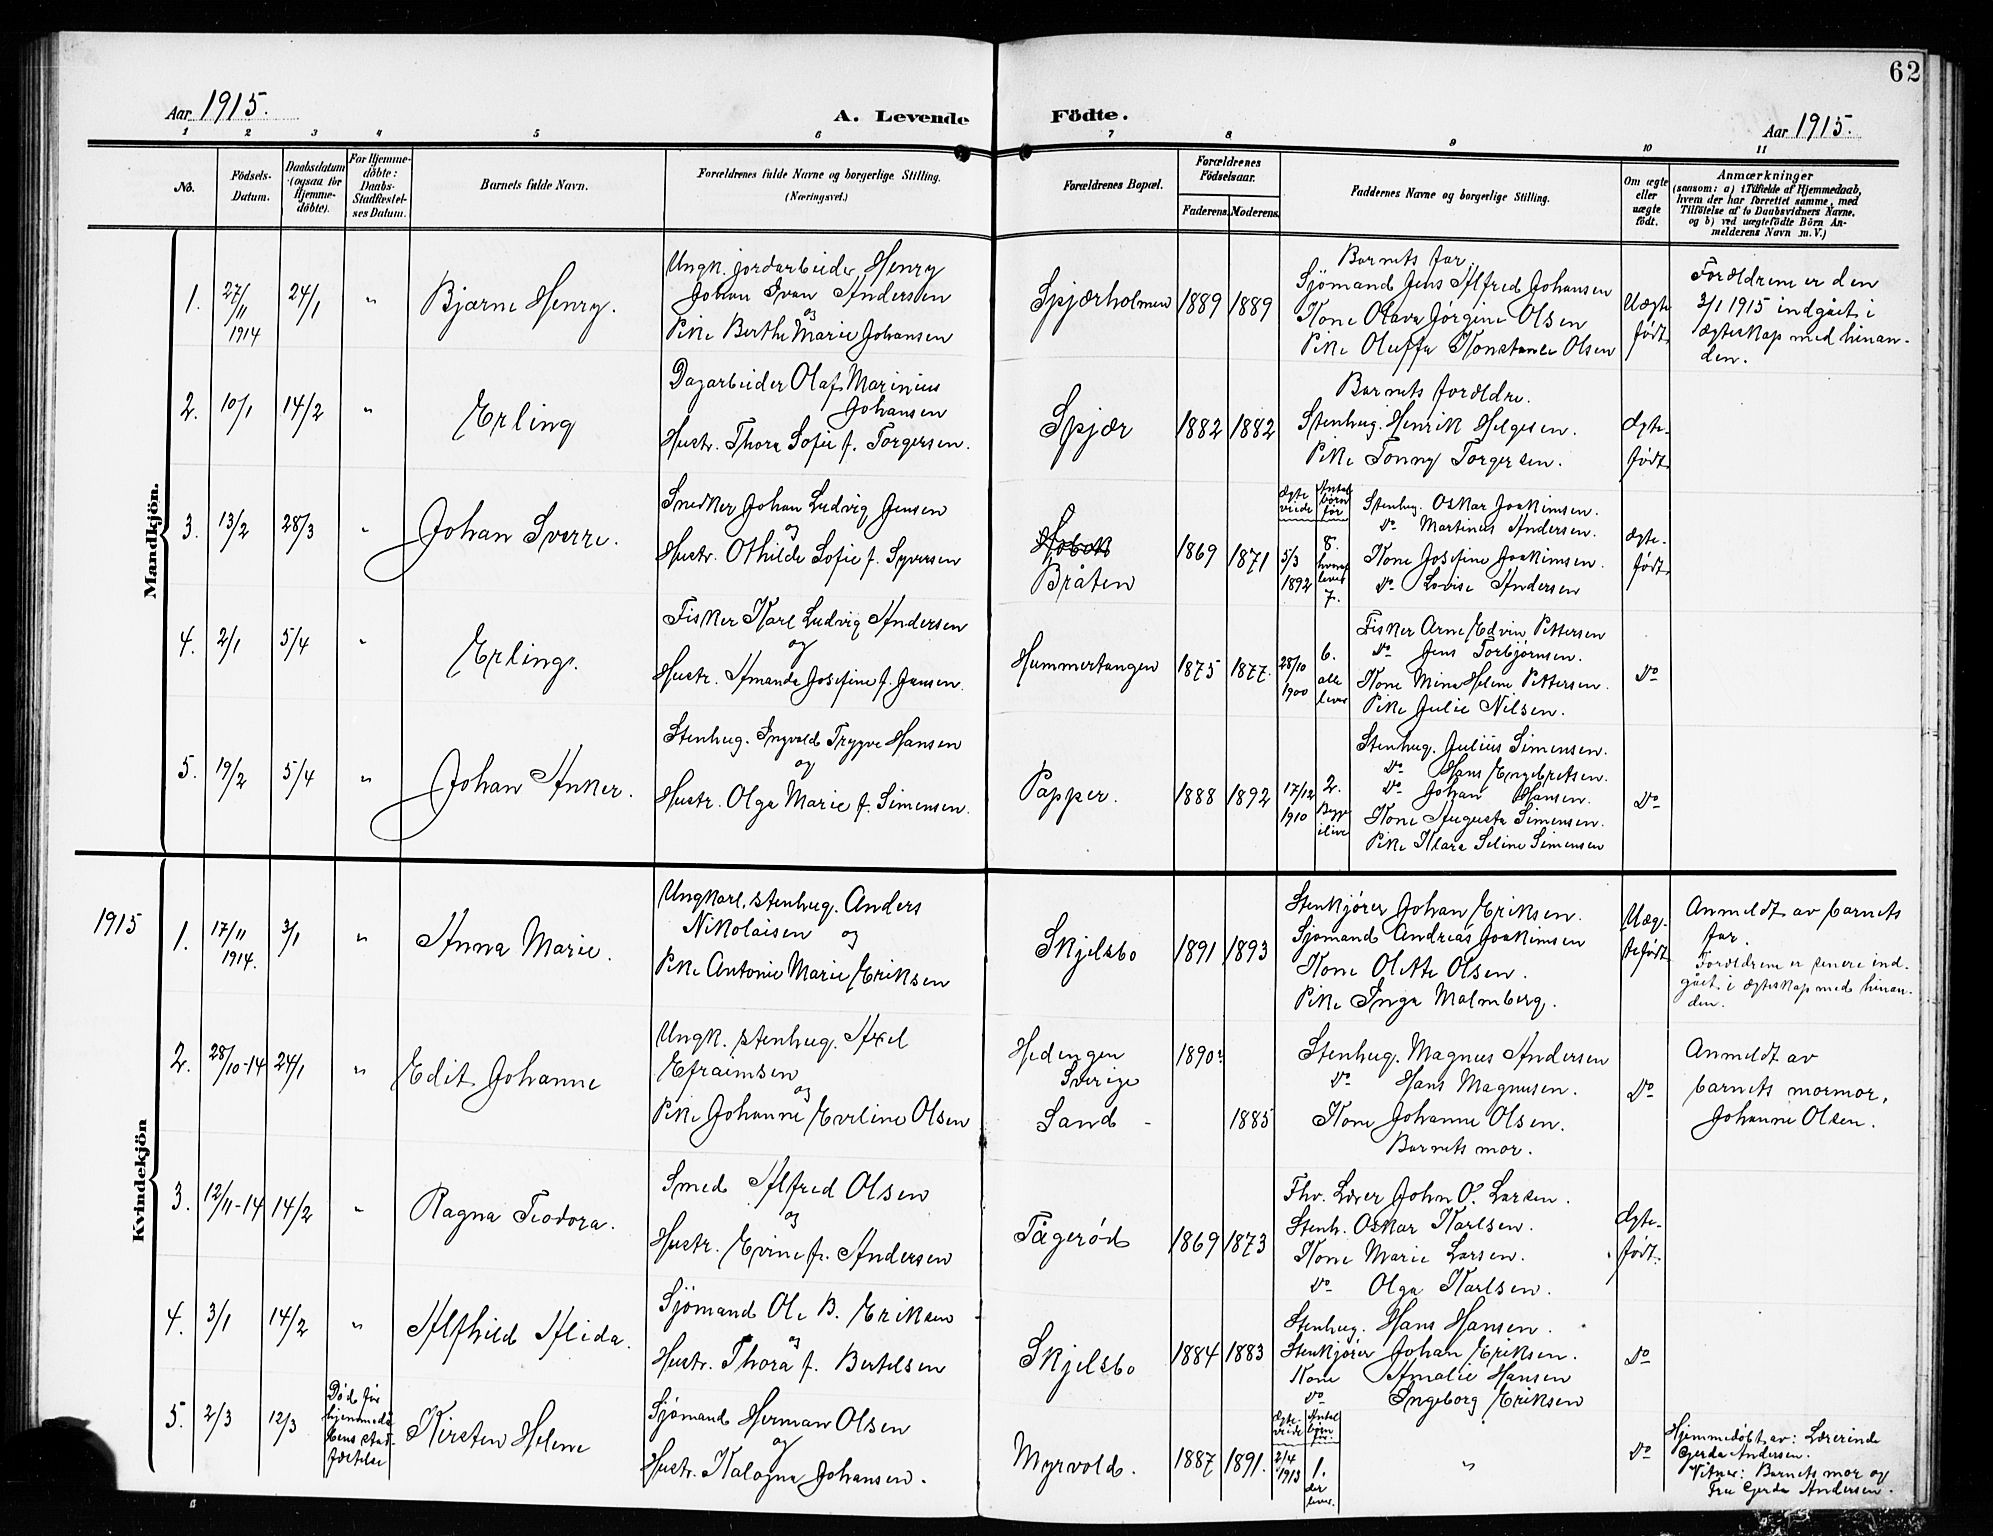 62
Aar 1915.
A. Levende Födte.
Aar 1915.
1 2 3 4 5 6 7 8 9 10 11
No.
Födsels-Datum.
Daabsdatum (ogsaa for Hjemme-döbte).
For Hjemme-döbte: Daabs-Stadfæstel-ses Datum.
Barnets fulde Navn.
Forældrenes fulde Navne og borgerlige Stilling.
(Næringsvei.)
Forældrenes Bopæl.
Forældrenes Födselsaar.
Faderens. Moderens.
Faddernes Navne og borgerlige Stilling.
Om ægte eller uægte födt.
Anmærkninger
(saasom: a) i Tilfælde af Hjemmedaab,
hvem der har forrettet samme, med
Tilföielse af to Daabsvidners Navne.
og b) ved uægtefödte Börn An-
melderens Navn m. V.)
Mandkjön.
1. 27/11 1914 24/1 " Bjarne Henry.
Ungk. jordarbeider Henry
Johan Ivan Andersen
og
Pike Berthe Marie Johansen
Spjærholmen 1889 1889
Barnets far.
Sjömand Jens Alfred Johansen
Kone Olava Jørgine Olsen
Pike Oluffa Konstance Olsen
Uægte født
Forældrene er den
3/1 1915 indgået i
ægteskap med hinan-
den.
2. 10/1 14/2 " Erling
Dagarbeider Olaf Marinius
Johansen
Hustr. Thora Sofie f. Torgersen.
Spjær 1882 1882
Barnets forældre.
Stenhug. Henrik Helgesen.
Pike Tonny Torgersen.
Ægte-født
3. 13/2 28/3 " Johan Sverre.
Snedker Johan Ludvig Jensen
og
Hustr. Othilde Sofie f. Syversen
Bråten 1869 1871
Ægte viede Antal børn før
5/3 1892 8. hvoraf lever 7.
Stenhug. Oskar Joakimsen.
Do Martinus Andersen.
Kone Josefine Joakimsen.
Do Lovise Andersen
Ægte-født
4. 2/1 5/4 " Erling.
Fisker Karl Ludvig Andersen
og
Hustr. Amanda Josefine f. Jansen.
Hummertangen 1875 1877.
28/10 1900 6. alle lever
Fisker Arne Edvin Pettersen
Do Jens Torbjørnsen.
Kone Mina Helene Pettersen.
Pike Julie Nilsen.
Do
5. 19/2 5/4 " Johan Anker.
Stenhug. Ingvald Trygve Hansen
og
Hustr. Olga Marie f. Simensen.
Papper. 1888 1892
17/12 1910 2. Begge ilive
Stenhug. Julius Simensen.
Do Hans Engebretsen.
Do Johan Hansen.
Kone Augusta Simensen.
Pike Klara Seline Simensen
Do
Kvindekjön
1915
1. 17/11 1914. 3/1 " Anna Marie.
Ungkarl, stenhug. Anders
Nikolaisen og
Pike Antonie Marie Eriksen
Skjelsbo 1891 1893
Stenkjører Johan Eriksen.
Sjømand Andreas Joakimsen
Kone Olette Olsen.
Pike Inga Malmberg.
Uæg-tefødt
Anmeldt av barnets
far.
Forældrene er senere ind-
gået i ægteskap med hinan-
den.
2. 28/10-14 24/1 " Edit Johanne
Ungk. stenhug. Axel
Efraimsen
og
Pike Johanne Eveline Olsen
Hedengen
Sverige
Sand -
1890? 1885
Stenhug. Magnus Andersen
Do Hans Magnusen.
Kone Johanne Olsen.
Barnets mor.
Do
Anmeldt av
barnets mormor,
Johanne Olsen.
3. 12/11-14 14/2 " Ragna Teodora.
Smed Alfred Olsen
og
Hustr. Evine f. Andersen
Tågerød 1869 1873
Fhv. Lærer John O. Larsen.
Stenh. Oskar Karlsen.
Kone Marie Larsen.
Do Olga Karlsen.
Ægte-født.
4. 3/1 14/2 " Alfhild Alida.
Sjömand Ole B. Eriksen
og
Hustr. Thora f. Bertelsen
Skjelsbo 1884 1883
Stenhug. Hans Hansen.
Stenkjører Johan Eriksen.
Kone Amalie Hansen
Do Ingeborg Eriksen
Do
5. 2/3 12/3
Død før
hjemmedå-
bens stad-
fæstelse
Kirsten Helene
Sjömand Herman Olsen
og
Hustr. Kalogna Johansen.
Myrvold. 1887 1891.
Ægte-viede Antal børn før
2/4 1913 1. der lever.
"
Do
Hjemmedøbt av: Lærerinde
Gerda Andersen.
Vitner: Barnets mor og
Fru Gerda Andersen.